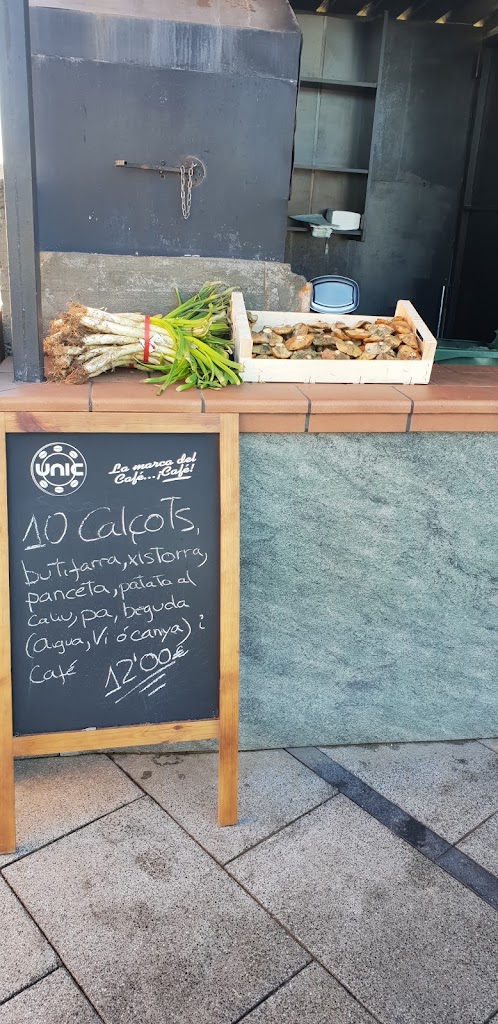 UNIC
La marca del
Café...¡Café!
10 Calçots,
butifarra, xistorra,
panceta, patata al
caliu, pa, beguda
(aigua, vi ó canya) i
café 12'00€